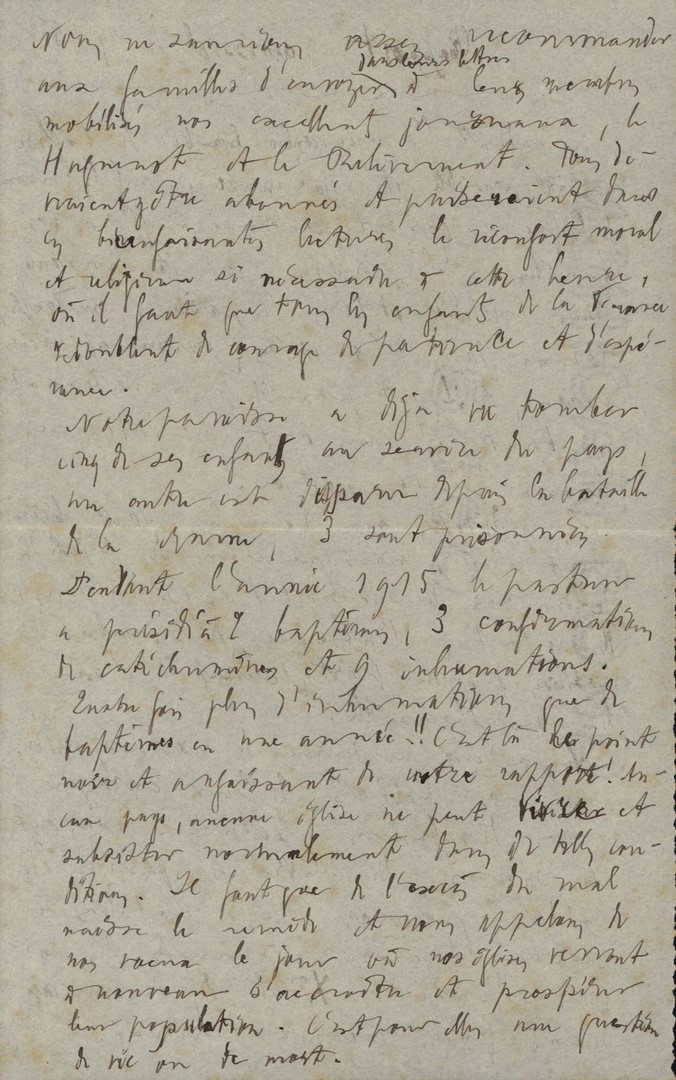 Nous ne saurions assez recommander
dans leurs lettres
aux familles d'envoyer à leurs membres
mobilisés nos excellents journaux, le
Huguenot et le Relèvement. Tous de-
vraient y être abonnés et puiseraient dans
ces bienfaisantes lectures le réconfort moral
et religieux si nécessaire à cette heure,
où il faut que tous les enfants de la France
redoublent de courage de patience et d'espé-
rance.
Notre paroisse a déjà vu tomber
cinq de ses enfants au service du pays,
un autre est disparu depuis la bataille
de la Marne, 3 sont prisonniers.
Pendant l'année 1915 le pasteur
a présidé à 2 baptêmes, 3 confirmations
de catéchumènes et 9 inhumations.
Quatre fois plus d'inhumations que de
baptêmes en une année!! C'est là le point
noir et angoissant de notre rapport! Au-
cun pays, aucune église ne peut vivre et
subsister normalement dans de telles con-
ditions. Il faut que de l'excès du mal
naisse le remède et nous appelons de
nos vœux le jour où nos églises verront
à nouveau s'accroître et prospérer
leur population. C'est pour elles une question
de vie ou de mort.